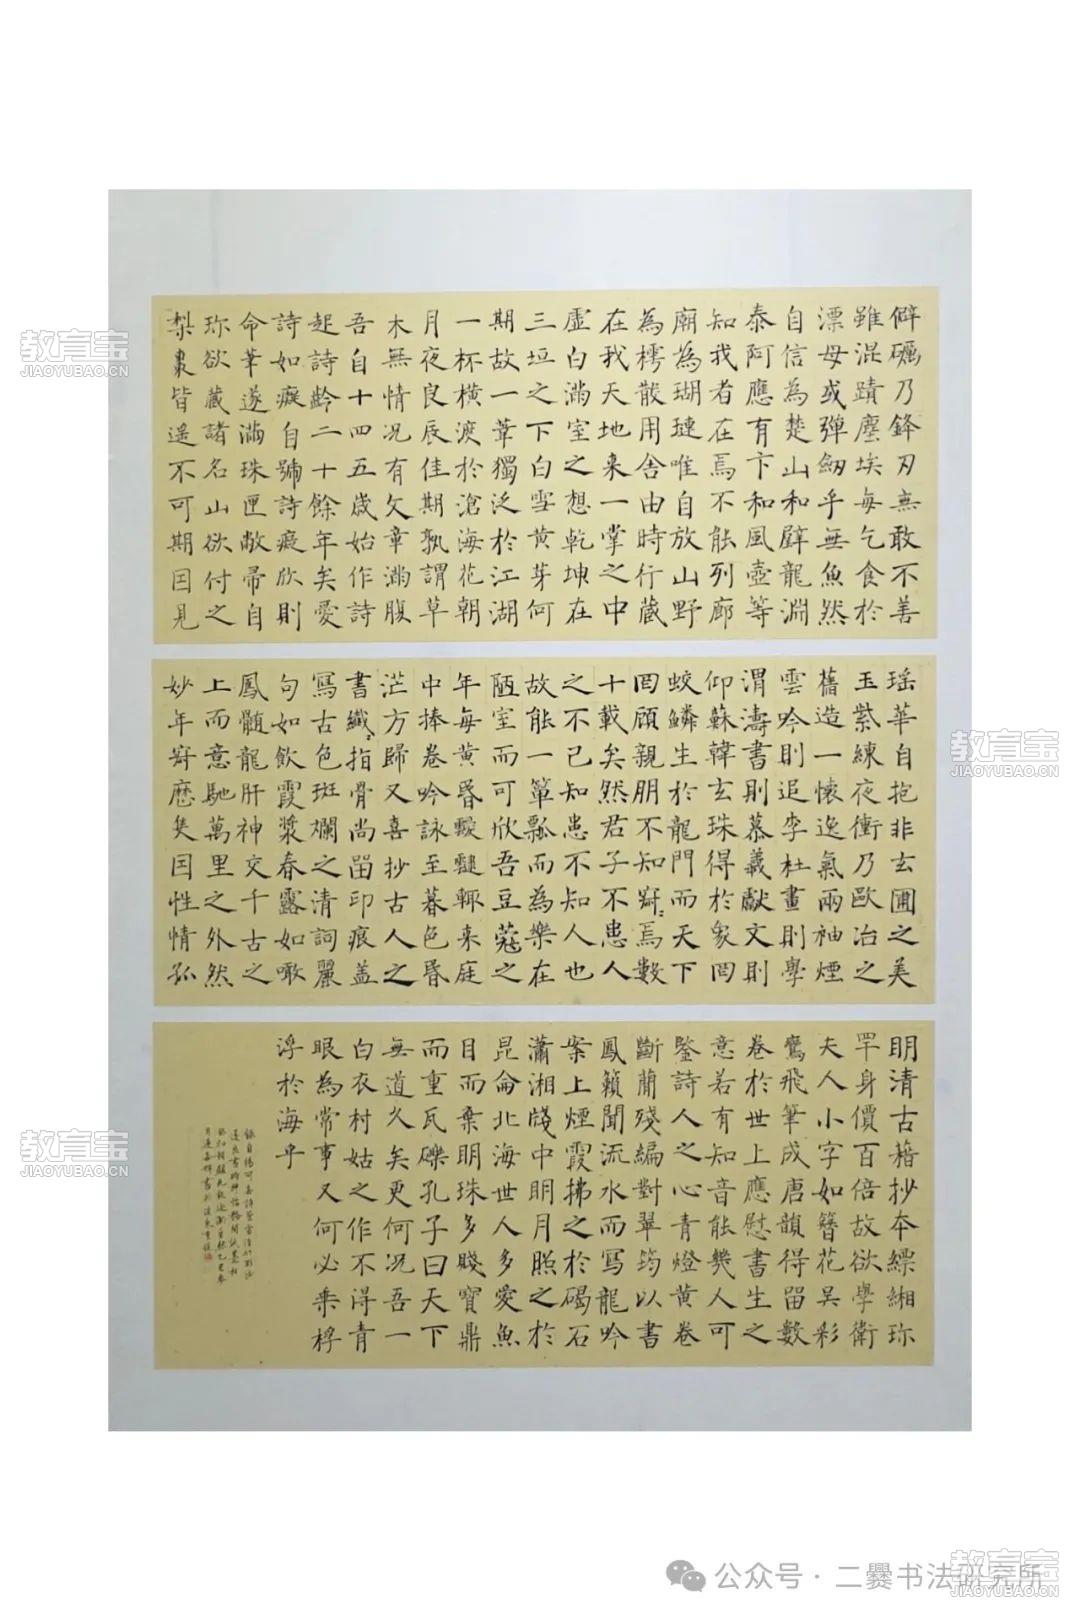 僻礪乃鋒刃無敢不善
雖混蹟塵埃每乞食於
漂母或彈劒乎無魚然
自信為楚山和璧龍淵
泰阿應有卞和風壺等
知我者在焉不能列廊
廟為瑚璉唯自放山野
為樗散用舍由時行藏
在我天地来一掌之中
虛白滿室之想乾坤在
三垣之下白雪黃芽何
期故一葦獨泛於江湖
一杯橫渡於滄海花朝
月夜良辰佳期孰謂草
木無情况有文章滿腹
吾自十四五歲始作詩
起詩齡二十餘年矣愛
詩如癡自號詩癡欣則
命筆遂滿珠匣敝帚自
珎欲藏諸名山欲付之
梨棗皆遥不可期因見
瑶華自抱非玄圃之美
玉紫練夜衝乃歐冶之
舊造一懷逸氣兩袖煙
雲吟則追李杜畫則學
渭濤書則慕羲獻文則
仰蘇韓玄珠得於象罔
蛟鱗生於龍門而天下
罔顧親朋不知焉數
十載矣然君子不患人
之不己知患不知人也
故能一簞瓢而為樂在
陋室而可欣吾豆蔻之
年每黃昬靉靆輒来庭
中捧卷吟詠至暮色昬
茫方歸又喜抄古人之
書纖指骨尚留印痕盖
寫古色斑斕之清詞麗
句如飲霞漿春露如噉
鳳髓龍肝神交千古之
上而意馳萬里之外然
妙年歷矣因性情孤
明清古藉抄夲縹緗珎
罕身價百倍故欲學衛
夫人小字如簪花吴彩
鸞飛筆成唐韻得留數
卷於世上應慰書生之
意若有知音能幾人可
鑒詩人之心青燈黃卷
斷蘭殘編對翠筠以書
鳳籟聞流水而寫龍吟
案上煙霞拂之於碣石
瀟湘牋中明月照之於
昆侖北海世人多愛魚
目而棄明珠多賤寶鼎
而重瓦礫孔子曰天下
無道久矣更何况吾一
白衣村姑之作不得青
眼為常事又何必乘桴
浮於海乎
教育宝
JIAOYUBAO.CN
教育宝
JIAOYUBAO.CN
教育宝
JIAOYUBAO.CN
教育宝
JIAOYUBAO.CN
公众号·二爨书法研究所